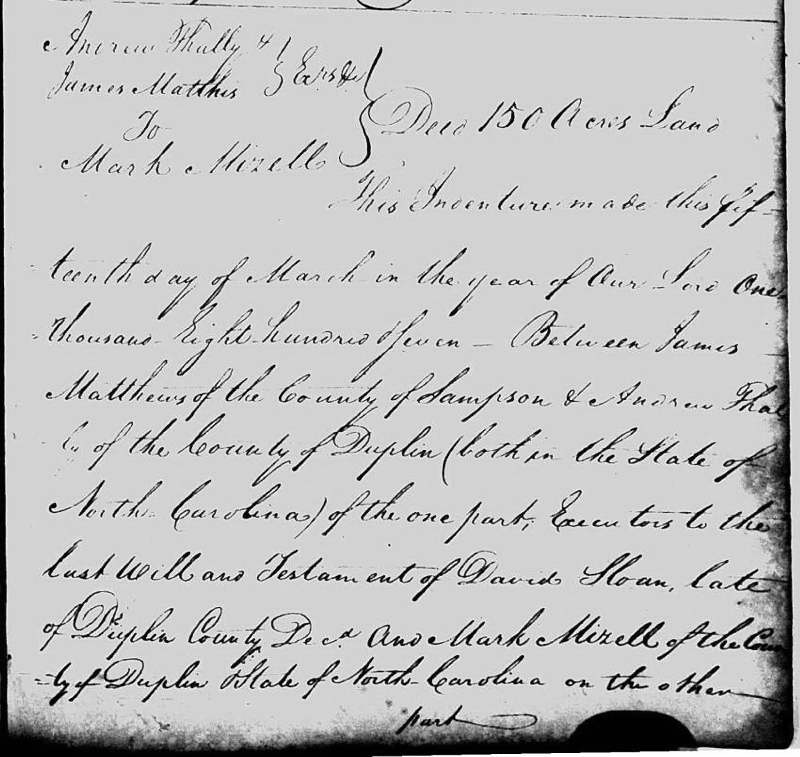 Andrew Thally &
James Matthis } Exrs &c
To
Mark Mizell } Deed 150 Acres Land
This Indenture made this fif-
teenth day of March in the year of Our Lord One
thousand Eight hundred & Seven – Between James
Matthews of the County of Sampson & Andrew Thal
ly of the County of Duplin (both in the State of
North Carolina) of the one part, Executors to the
last Will and Testament of David Sloan, late
of Duplin County Decd. And Mark Mizell of the Coun
-ty of Duplin & State of North Carolina on the other
part